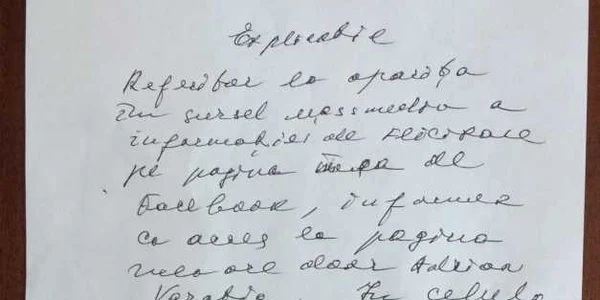 Explicație
Referitor la apariția
în sursele massmedia a
informației de
pe pagina mea de
Facebook, informez
că acces la pagina
mea are doar Adrian
În celula